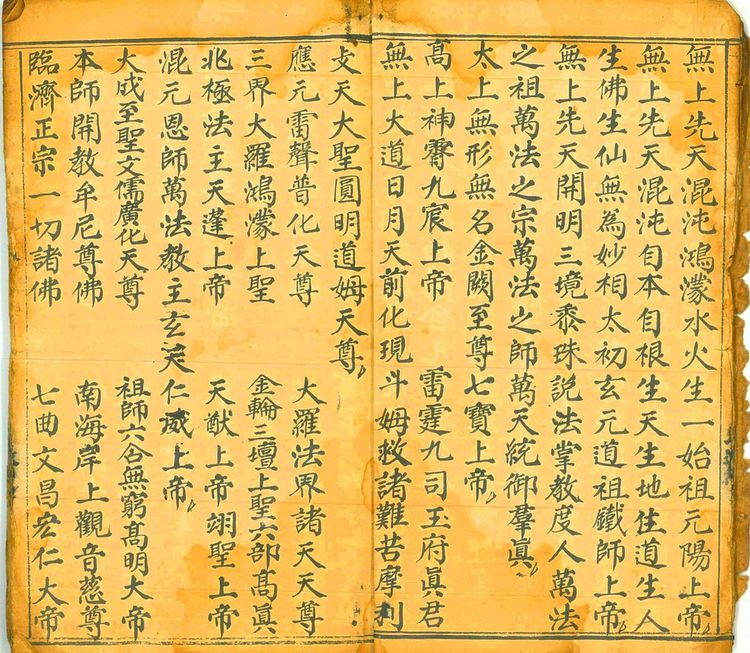 無上先天混沌鴻濛水火生一始祖元陽上帝
無上先天混沌自本自根生天生地住道生人
生佛生仙無為妙相太初玄元道祖鐵師上帝
無上先天開明三境黍珠說法掌教度人萬法
之祖萬法之宗萬法之師萬天統御羣真
太上無形無名金闕至尊七寶上帝
高上神霄九宸上帝 雷霆九司玉府真君
無上大道日月天前化現斗姆救諸難苦摩利
攴天大聖圓明道姆天尊
應元雷聲普化天尊 大羅法界諸天天尊
三界大羅鴻濛上聖 金輪三壇上聖六部高真
北極法主天蓬上帝 天猷上帝翊聖上帝
混元恩師萬法教主玄天仁威上帝
大成至聖文儒廣化天尊 祖師六合無窮高明大帝
本師開教牟尼尊佛 南海岸上觀音慈尊
臨濟正宗一切諸佛 七曲文昌宏仁大帝